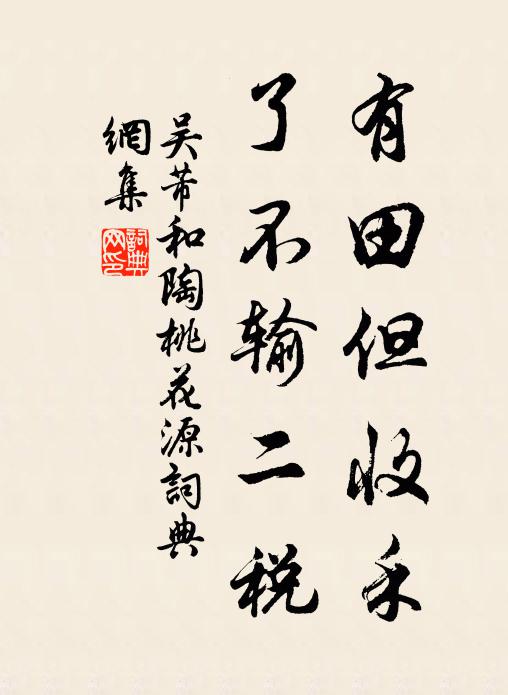 有田但收禾
了不输二税
吴芾和陶桃花源詞典
網集
詞典網印